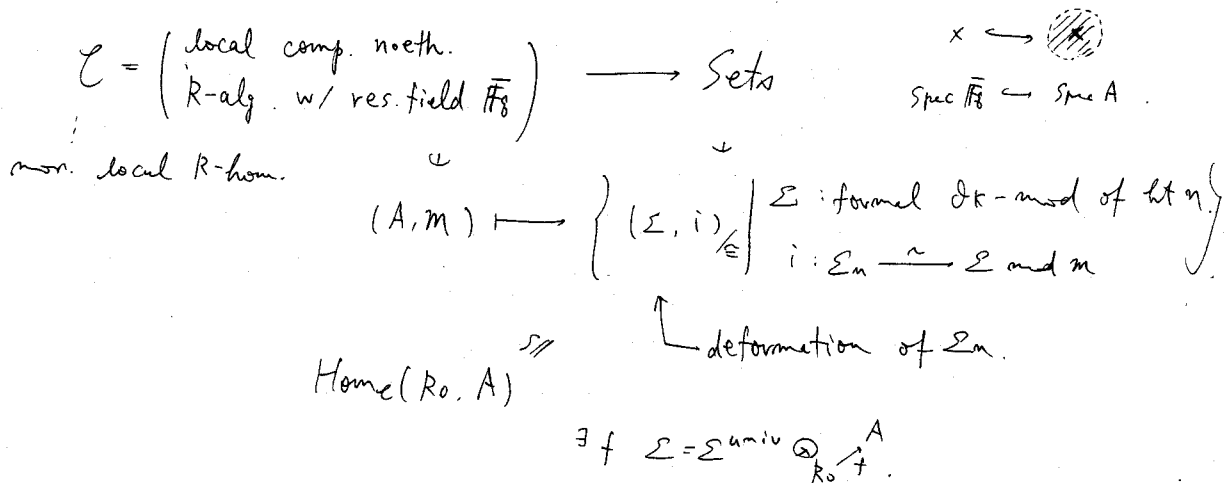 C = ( local comp. noeth. R-alg. w/ res. field F̄_q ) ⟶ Sets
x ↪ x
Spec F̄_q ↪ Spec A.
mor. local R-hom.
(A, m) ⟼ { (Σ, i)/≅ | Σ : formal O_K-mod of ht n.
i : Σ_n ⥲ Σ mod m }.
deformation of Σ_n.
Hom_C(R_0, A)
∃ f Σ = Σ^univ ⊗_{R_0 ↗ f} A.